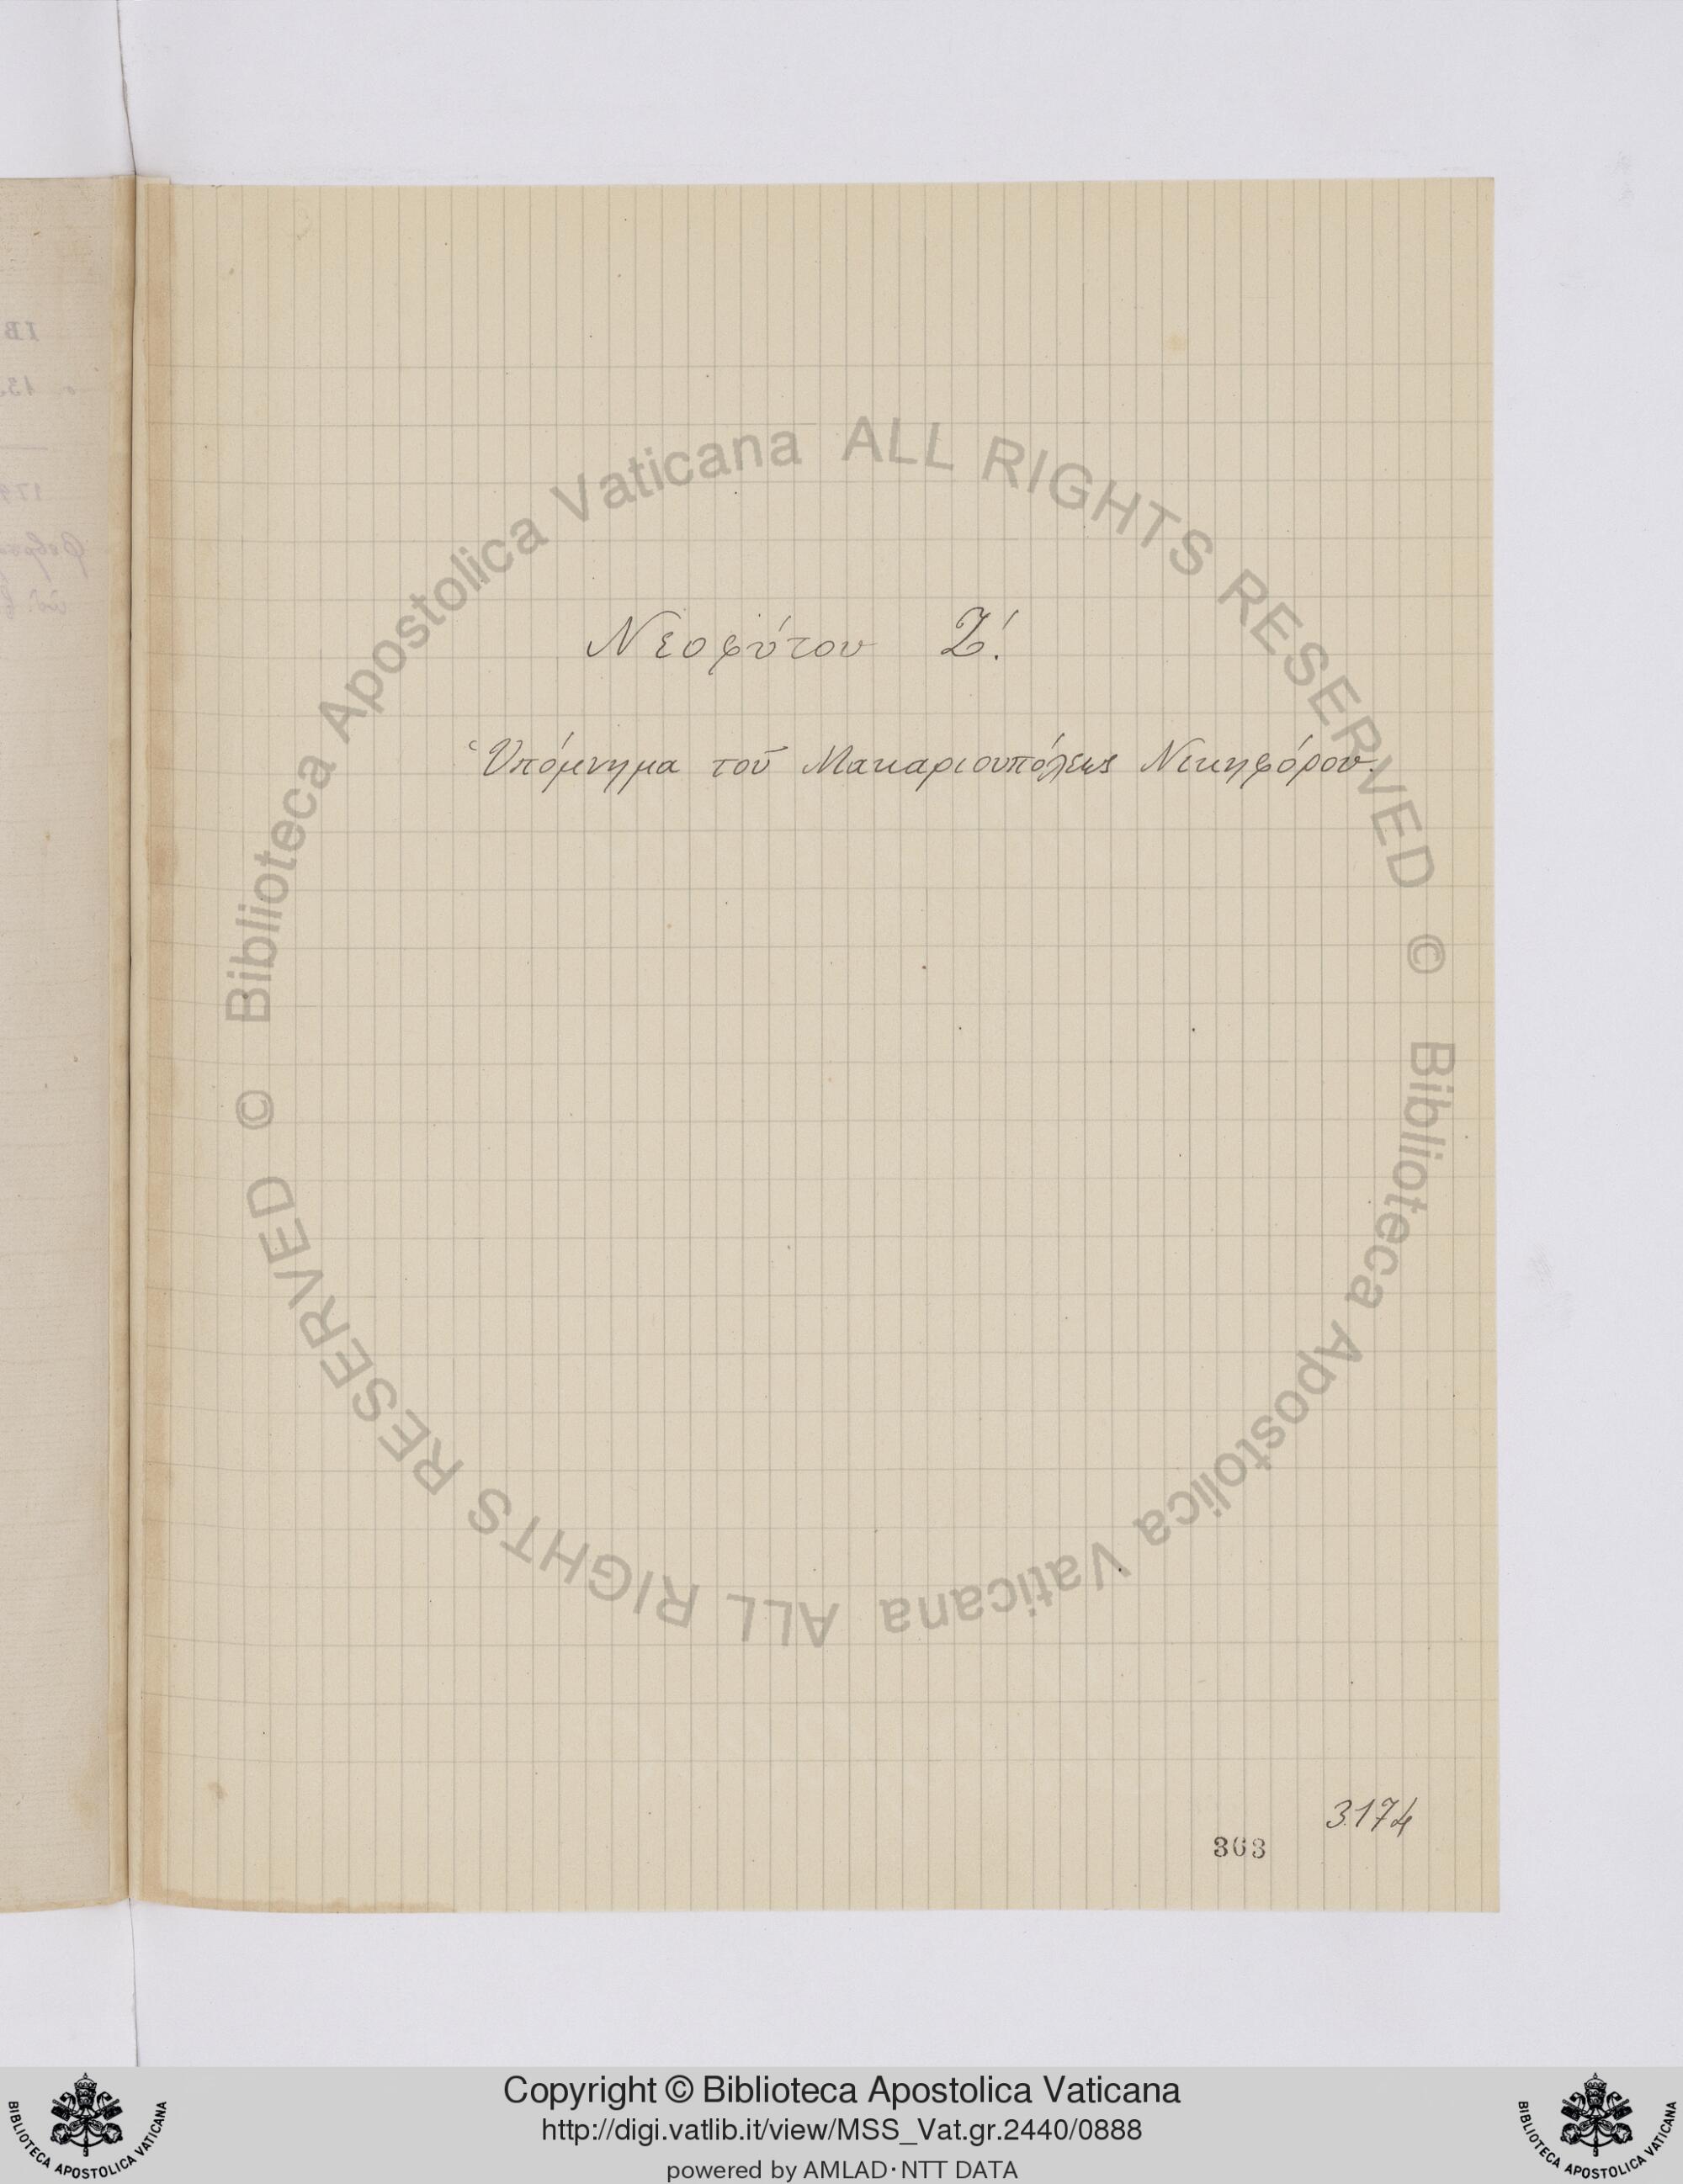 Νεοφύτου Ζ!
Ὑπόμνημα τοῦ Μακαριουπόλεως Νικηφόρου.
3174
363
© Biblioteca Apostolica Vaticana ALL RIGHTS RESERVED
© Biblioteca Apostolica Vaticana ALL RIGHTS RESERVED
BIBLIOTECA APOSTOLICA VATICANA
Copyright © Biblioteca Apostolica Vaticana
http://digi.vatlib.it/view/MSS_Vat.gr.2440/0888
powered by AMLAD·NTT DATA
BIBLIOTECA APOSTOLICA VATICANA